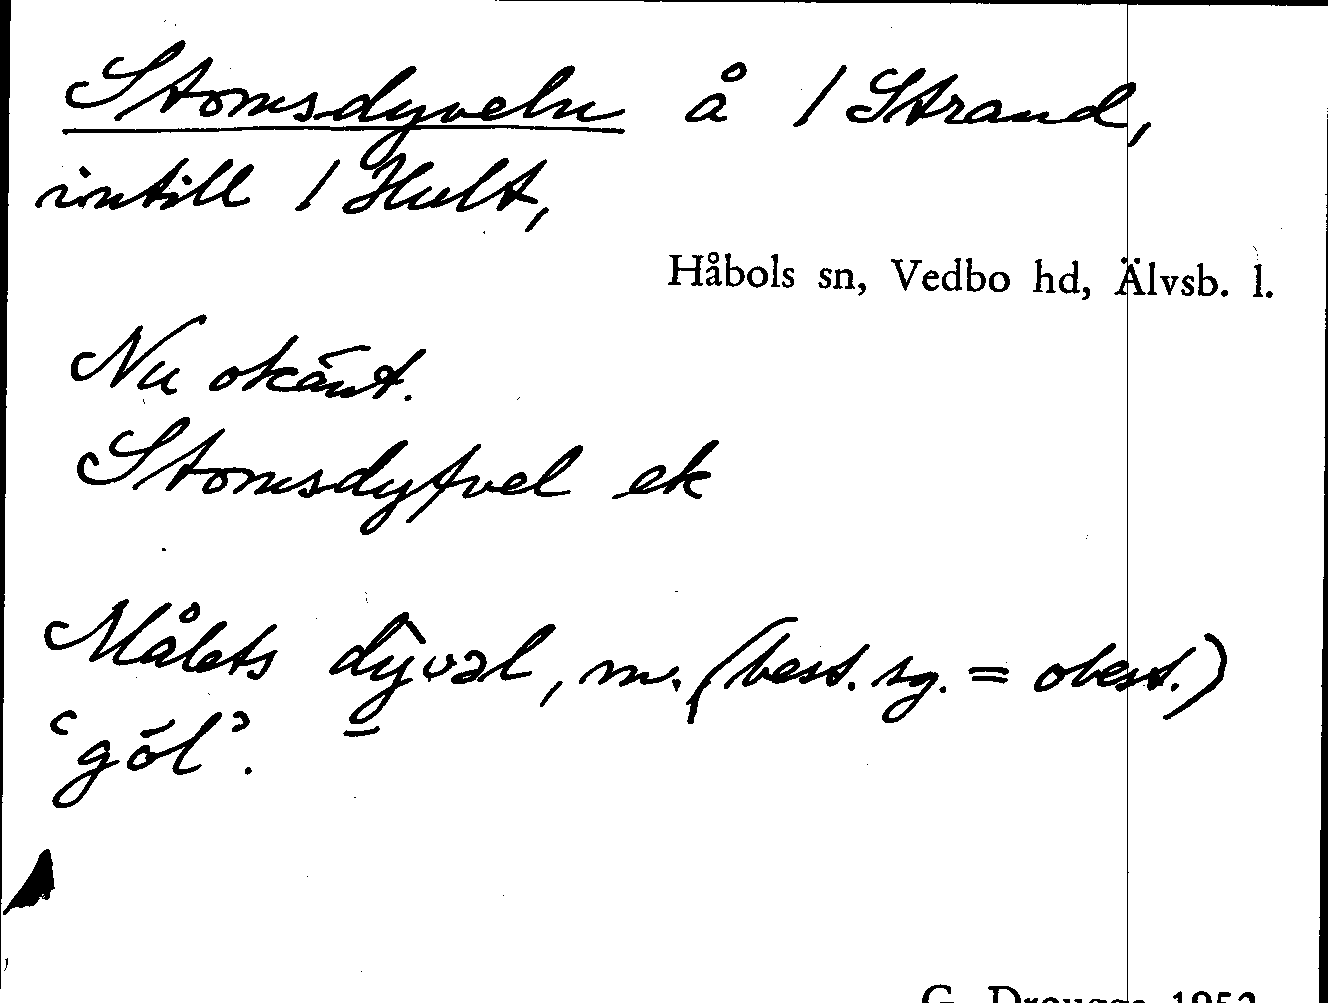 Stomsdyveln å 1 Strand,
intill 1 Hult,
Håbols sn, Vedbo hd, Älvsb. l.
Nu okänt.
Stomsdyfvel ek
Målets dy̆vəl, m. (best. sg. = obest.)
‘göl’.